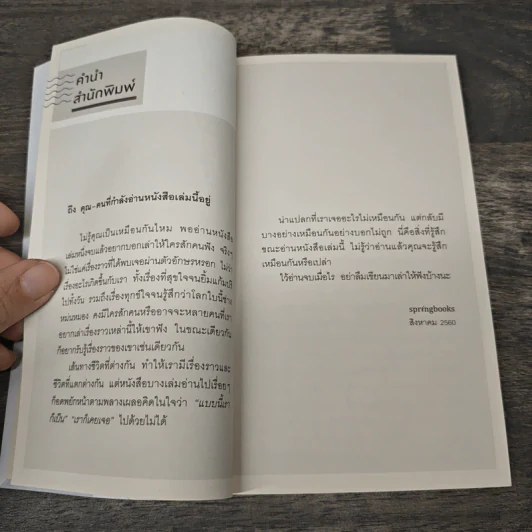 คำนำ
สำนักพิมพ์
ถึง คุณ–คนที่กำลังอ่านหนังสือเล่มนี้อยู่
ไม่รู้คุณเป็นเหมือนกันไหม พออ่านหนังสือ
เล่มหนึ่งจบแล้วอยากบอกเล่าให้ใครสักคนฟัง จริงๆ
ไม่ใช่แค่เรื่องราวที่ได้พบเจอผ่านตัวอักษรหรอก ไม่ว่า
เรื่องอะไรเกิดขึ้นกับเรา ทั้งเรื่องที่สุขใจจนยิ้มแก้มปริ
ไปทั้งวัน รวมถึงเรื่องทุกข์ใจจนรู้สึกว่าโลกใบนี้ช่าง
หม่นหมอง คงมีใครสักคนหรืออาจจะหลายคนที่เรา
อยากเล่าเรื่องราวเหล่านี้ให้เขาฟัง ในขณะเดียวกัน
ก็อยากรับรู้เรื่องราวของเขาเช่นเดียวกัน
เส้นทางชีวิตที่ต่างกัน ทำให้เรามีเรื่องราวและ
ชีวิตที่แตกต่างกัน แต่หนังสือบางเล่มอ่านไปเรื่อยๆ
ก็อดพยักหน้าตามพลางเผลอคิดในใจว่า “แบบนี้เรา
ก็เป็น” “เราก็เคยเจอ” ไปด้วยไม่ได้
น่าแปลกที่เราเจออะไรไม่เหมือนกัน แต่กลับมี
บางอย่างเหมือนกันอย่างบอกไม่ถูก นี่คือสิ่งที่รู้สึก
ขณะอ่านหนังสือเล่มนี้ ไม่รู้ว่าอ่านแล้วคุณจะรู้สึก
เหมือนกันหรือเปล่า
ไว้อ่านจบเมื่อไร อย่าลืมเขียนมาเล่าให้ฟังบ้างนะ
springbooks
สิงหาคม 2560